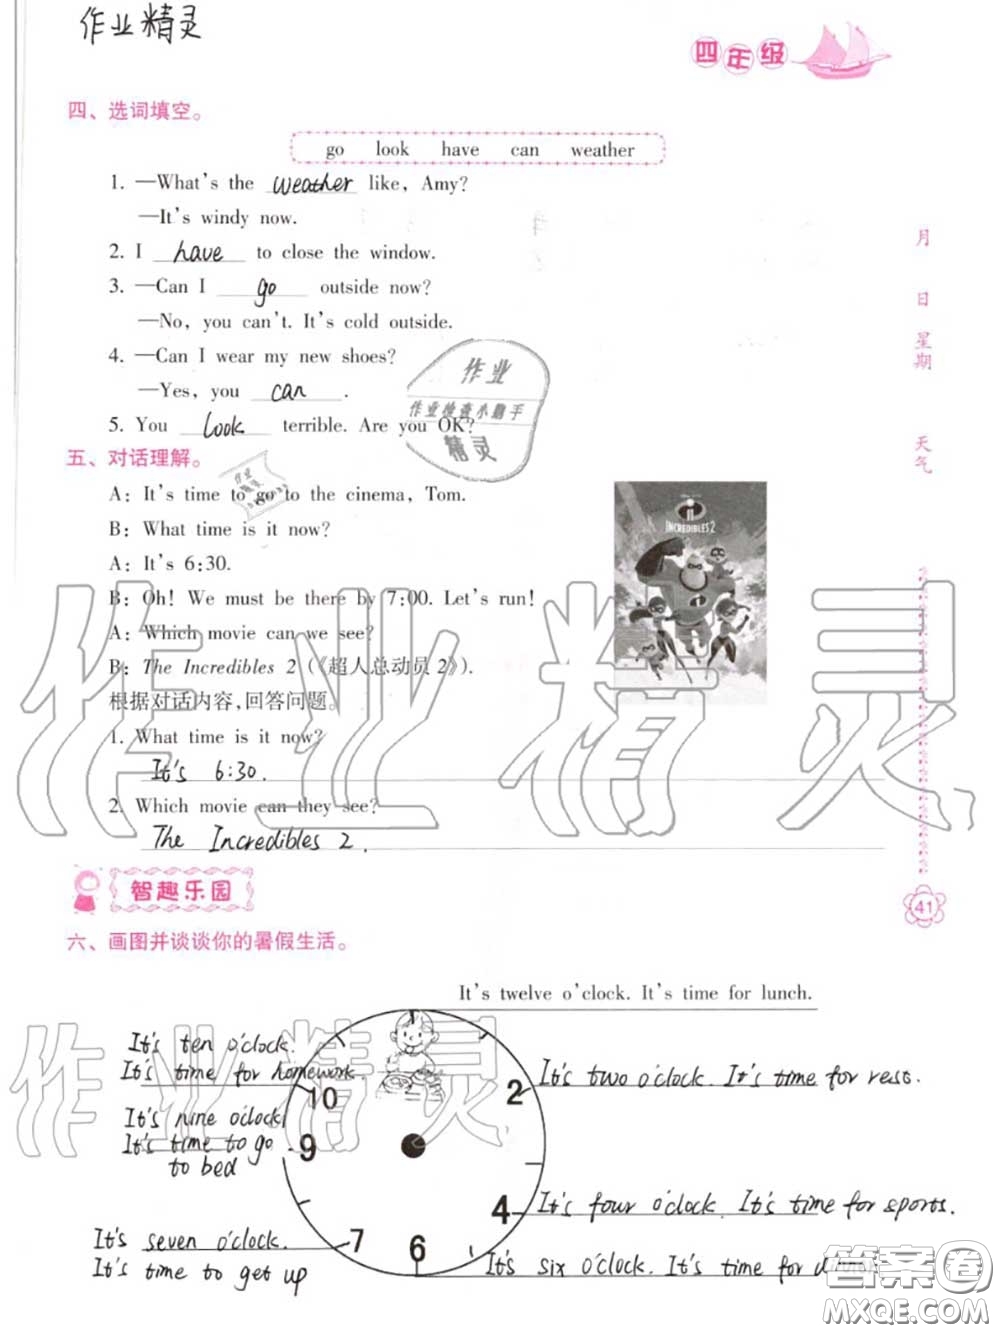 作业精灵
四年级
四、选词填空。
go look have can weather
1. —What's the weather like, Amy?
—It's windy now.
2. I have to close the window.
3. —Can I go outside now?
—No, you can't. It's cold outside.
4. —Can I wear my new shoes?
—Yes, you can .
5. You look terrible. Are you OK?
作业
作业检查小助手
精灵
五、对话理解。
A: It's time to go to the cinema, Tom.
B: What time is it now?
A: It's 6:30.
B: Oh! We must be there by 7:00. Let's run!
A: Which movie can we see?
B: The Incredibles 2 (《超人总动员2》).
INCREDIBLES 2
根据对话内容,回答问题。
1. What time is it now?
It's 6:30.
2. Which movie can they see?
The Incredibles 2.
作业精灵
月
日
星期
天气
41
智趣乐园
六、画图并谈谈你的暑假生活。
It's twelve o'clock. It's time for lunch.
It's ten o'clock.
It's time for homework.
10
2
It's two o'clock. It's time for rest.
It's nine o'clock
It's time to go
to bed
9
4
It's four o'clock. It's time for sports.
It's seven o'clock.
It's time to get up
7
6
It's six o'clock. It's time for dinner
作业精灵
答案圈
MXQE.COM